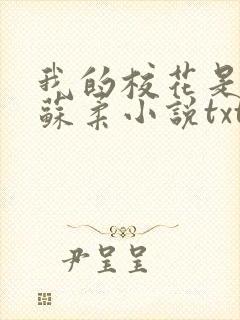 我的校花是
蘇柔小説txt
尹呈呈